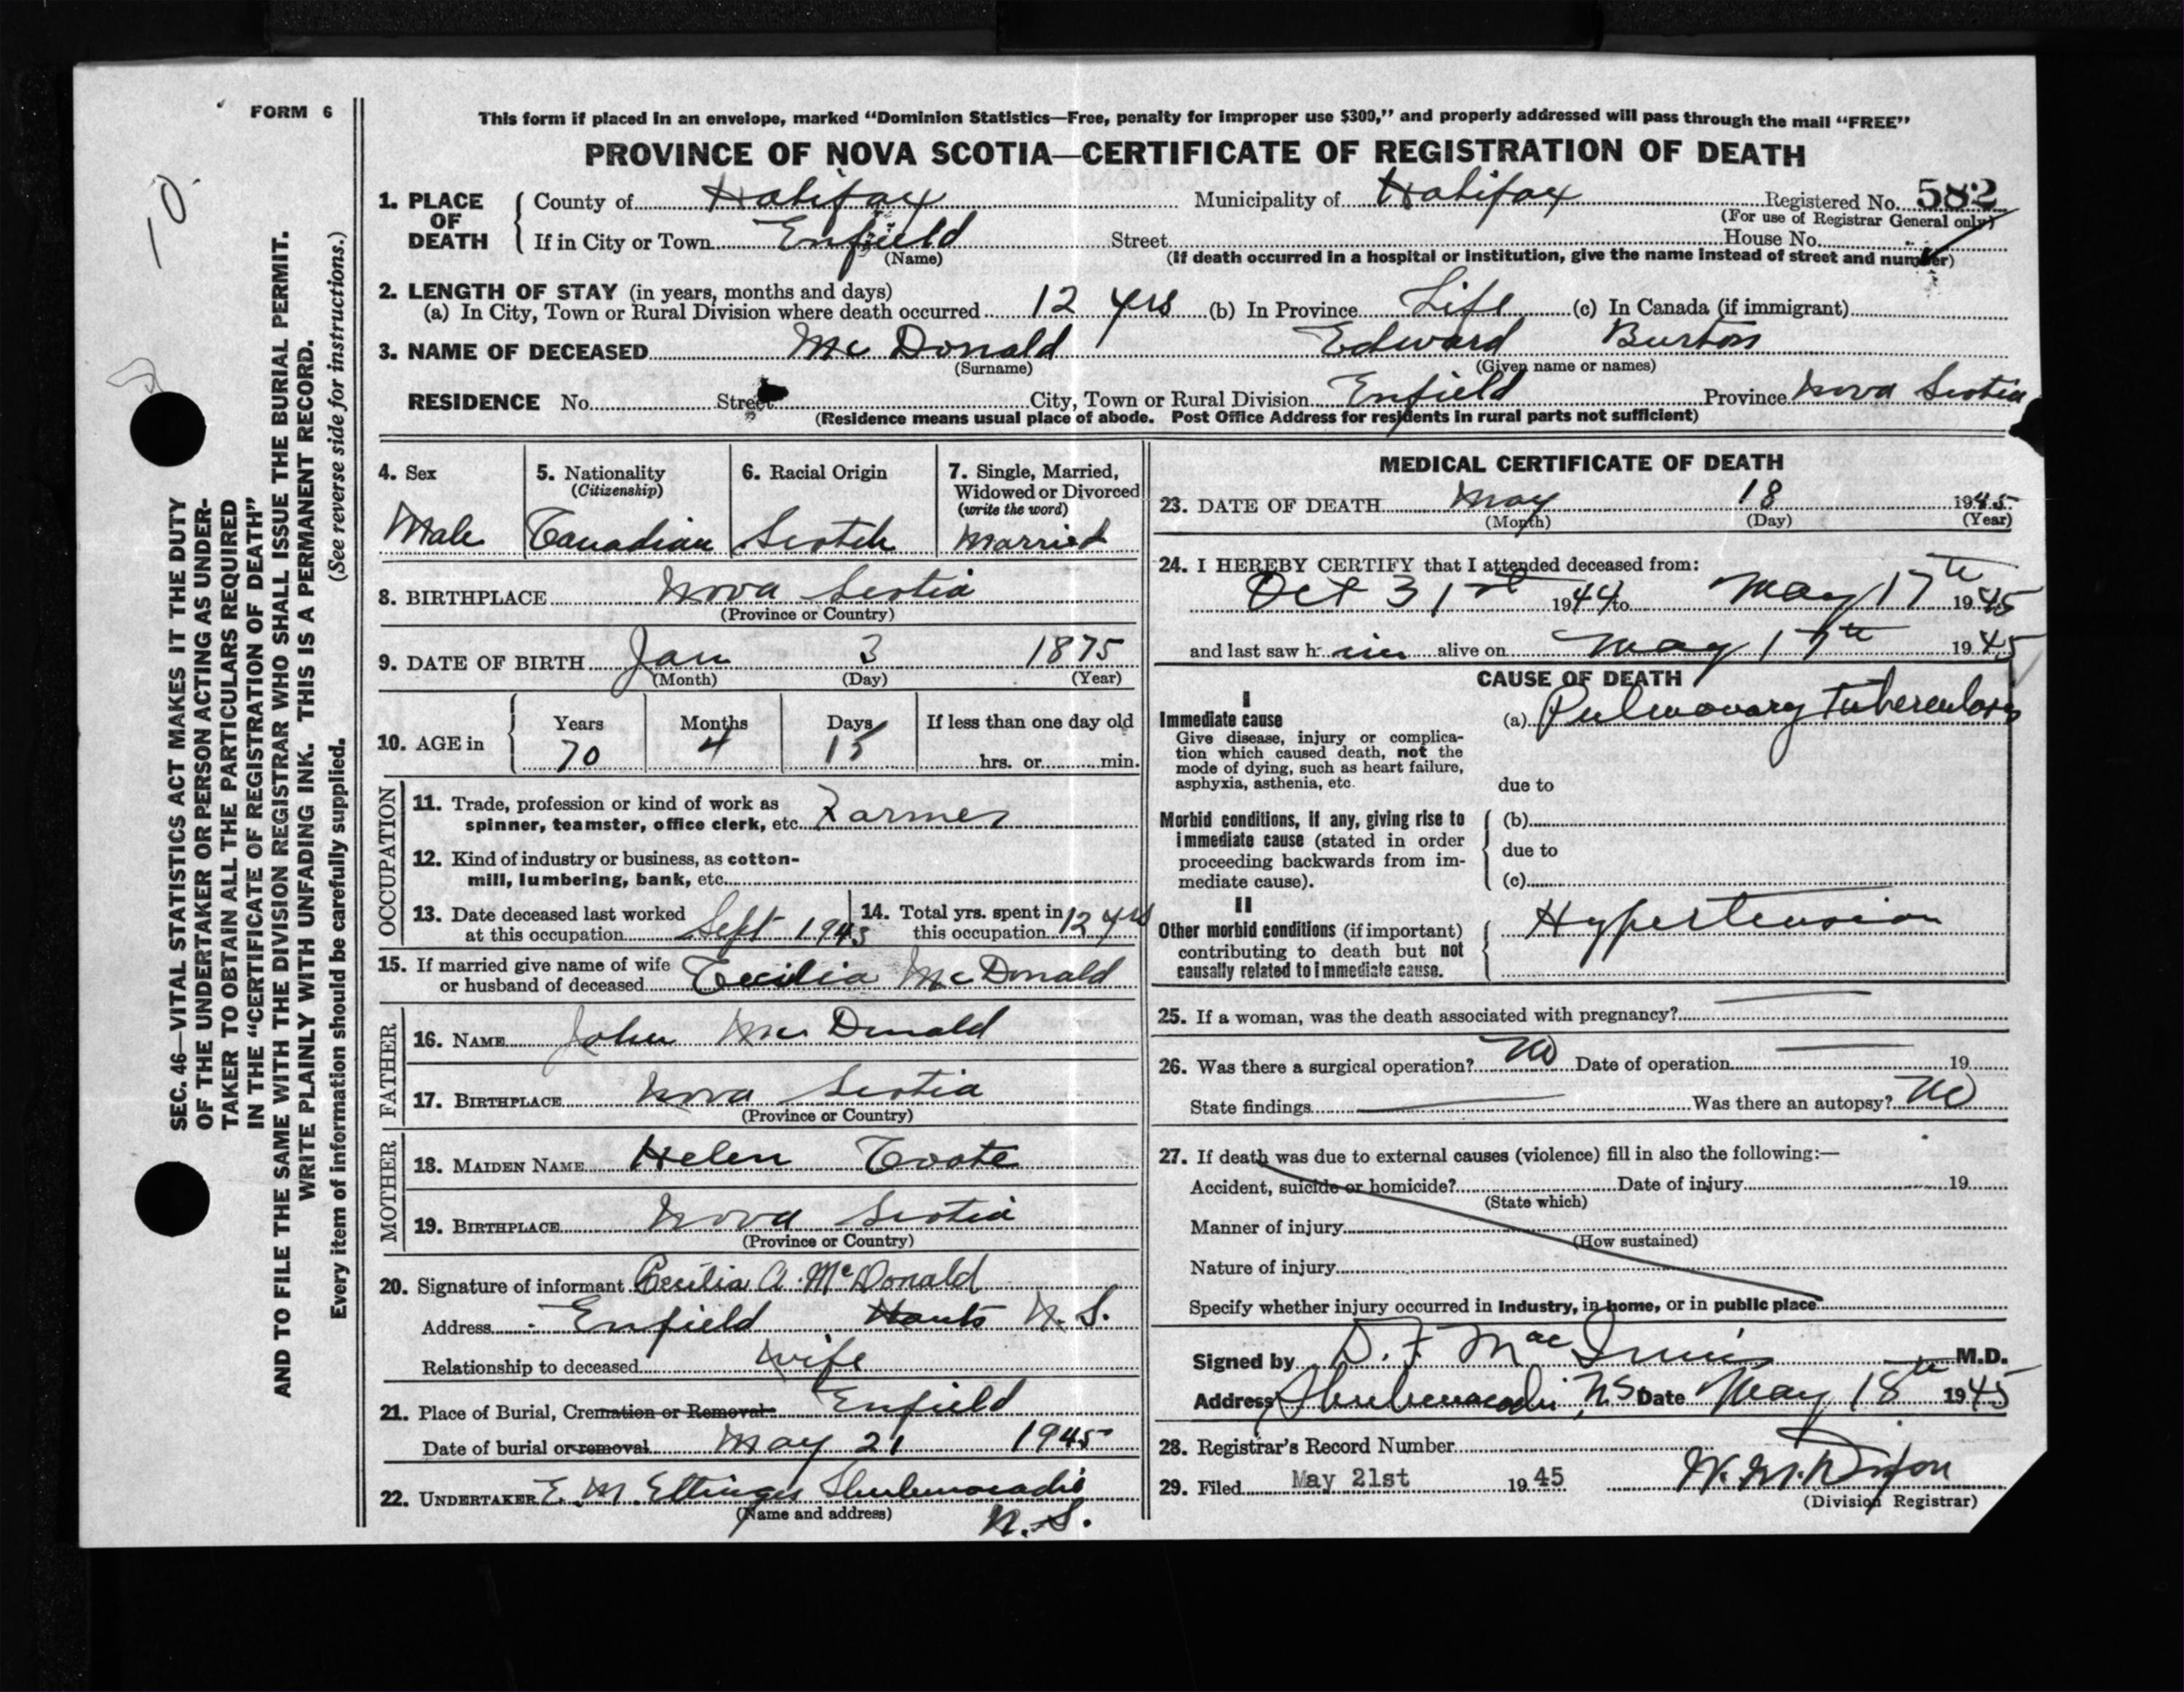 FORM 6
This form if placed in an envelope, marked "Dominion Statistics—Free, penalty for improper use $300," and properly addressed will pass through the mail "FREE"
PROVINCE OF NOVA SCOTIA—CERTIFICATE OF REGISTRATION OF DEATH
1. PLACE OF DEATH County of Halifax Municipality of Halifax Registered No. 582
(For use of Registrar General only)
If in City or Town Enfield Street House No.
(Name) (If death occurred in a hospital or institution, give the name instead of street and number)
2. LENGTH OF STAY (in years, months and days)
(a) In City, Town or Rural Division where death occurred 12 yrs (b) In Province Life (c) In Canada (if immigrant)
3. NAME OF DECEASED Mc Donald Edward Burton
(Surname) (Given name or names)
RESIDENCE No. Street City, Town or Rural Division Enfield Province Nova Scotia
(Residence means usual place of abode. Post Office Address for residents in rural parts not sufficient)
4. Sex 5. Nationality 6. Racial Origin 7. Single, Married,
(Citizenship) Widowed or Divorced
(write the word)
Male Canadian Scotch Married
8. BIRTHPLACE Nova Scotia
(Province or Country)
9. DATE OF BIRTH Jan 3 1875
(Month) (Day) (Year)
10. AGE in Years Months Days If less than one day old
70 4 15 hrs. or min.
OCCUPATION
11. Trade, profession or kind of work as
spinner, teamster, office clerk, etc. Farmer
12. Kind of industry or business, as cotton-
mill, lumbering, bank, etc.
13. Date deceased last worked
at this occupation Sept 1943
14. Total yrs. spent in
this occupation 12 yrs
15. If married give name of wife
or husband of deceased Cecilia McDonald
FATHER
16. NAME John Mc Donald
17. BIRTHPLACE Nova Scotia
(Province or Country)
MOTHER
18. MAIDEN NAME Helen Coote
19. BIRTHPLACE Nova Scotia
(Province or Country)
20. Signature of informant Cecilia A. McDonald
Address Enfield Hants N. S.
Relationship to deceased wife
21. Place of Burial, Cremation or Removal Enfield
Date of burial or removal May 21 1945
22. UNDERTAKER E. M. Ettinger Shubenacadie
(Name and address) N. S.
MEDICAL CERTIFICATE OF DEATH
23. DATE OF DEATH May 18 1945
(Month) (Day) (Year)
24. I HEREBY CERTIFY that I attended deceased from:
Oct 31st 1944 to May 17th 1945
and last saw him alive on May 17th 1945
CAUSE OF DEATH
I
Immediate cause (a) Pulmonary tuberculosis
Give disease, injury or complica-
tion which caused death, not the
mode of dying, such as heart failure,
asphyxia, asthenia, etc. due to
Morbid conditions, if any, giving rise to (b)
immediate cause (stated in order due to
proceeding backwards from im-
mediate cause). (c)
II
Other morbid conditions (if important) Hypertension
contributing to death but not
causally related to immediate cause.
25. If a woman, was the death associated with pregnancy?
26. Was there a surgical operation? No Date of operation 19
State findings Was there an autopsy? No
27. If death was due to external causes (violence) fill in also the following:—
Accident, suicide or homicide? Date of injury 19
(State which)
Manner of injury
(How sustained)
Nature of injury
Specify whether injury occurred in Industry, in home, or in public place
Signed by D. F. MacInnis M.D.
Address Shubenacadie, NS Date May 18th 1945
28. Registrar's Record Number
29. Filed May 21st 1945
(Division Registrar)
SEC. 46—VITAL STATISTICS ACT MAKES IT THE DUTY
OF THE UNDERTAKER OR PERSON ACTING AS UNDER-
TAKER TO OBTAIN ALL THE PARTICULARS REQUIRED
IN THE "CERTIFICATE OF REGISTRATION OF DEATH"
AND TO FILE THE SAME WITH THE DIVISION REGISTRAR WHO SHALL ISSUE THE BURIAL PERMIT.
WRITE PLAINLY WITH UNFADING INK. THIS IS A PERMANENT RECORD.
Every item of information should be carefully supplied. (See reverse side for instructions.)
10.